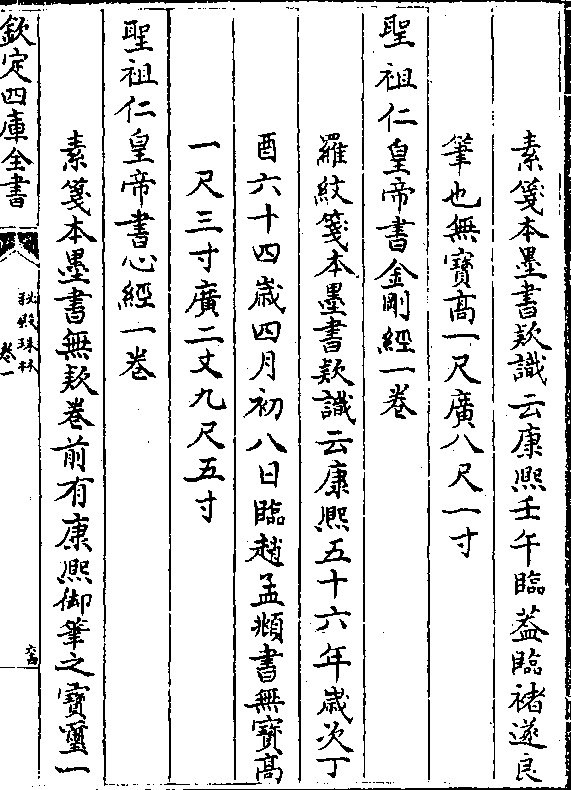 素箋本墨書款識云康熙壬午臨葢臨禇遂良
筆也無寶高一尺廣八尺一寸
聖祖仁皇帝書金剛經一卷
羅紋箋本墨書款識云康熙五十六年歲次丁
酉六十四歲四月初八日臨趙孟頫書無寶高
一尺三寸廣二丈九尺五寸
聖祖仁皇帝書心經一卷
素箋本墨書無款卷前有康熙御筆之寶璽一
欽定四庫全書
秘殿珠林
卷一